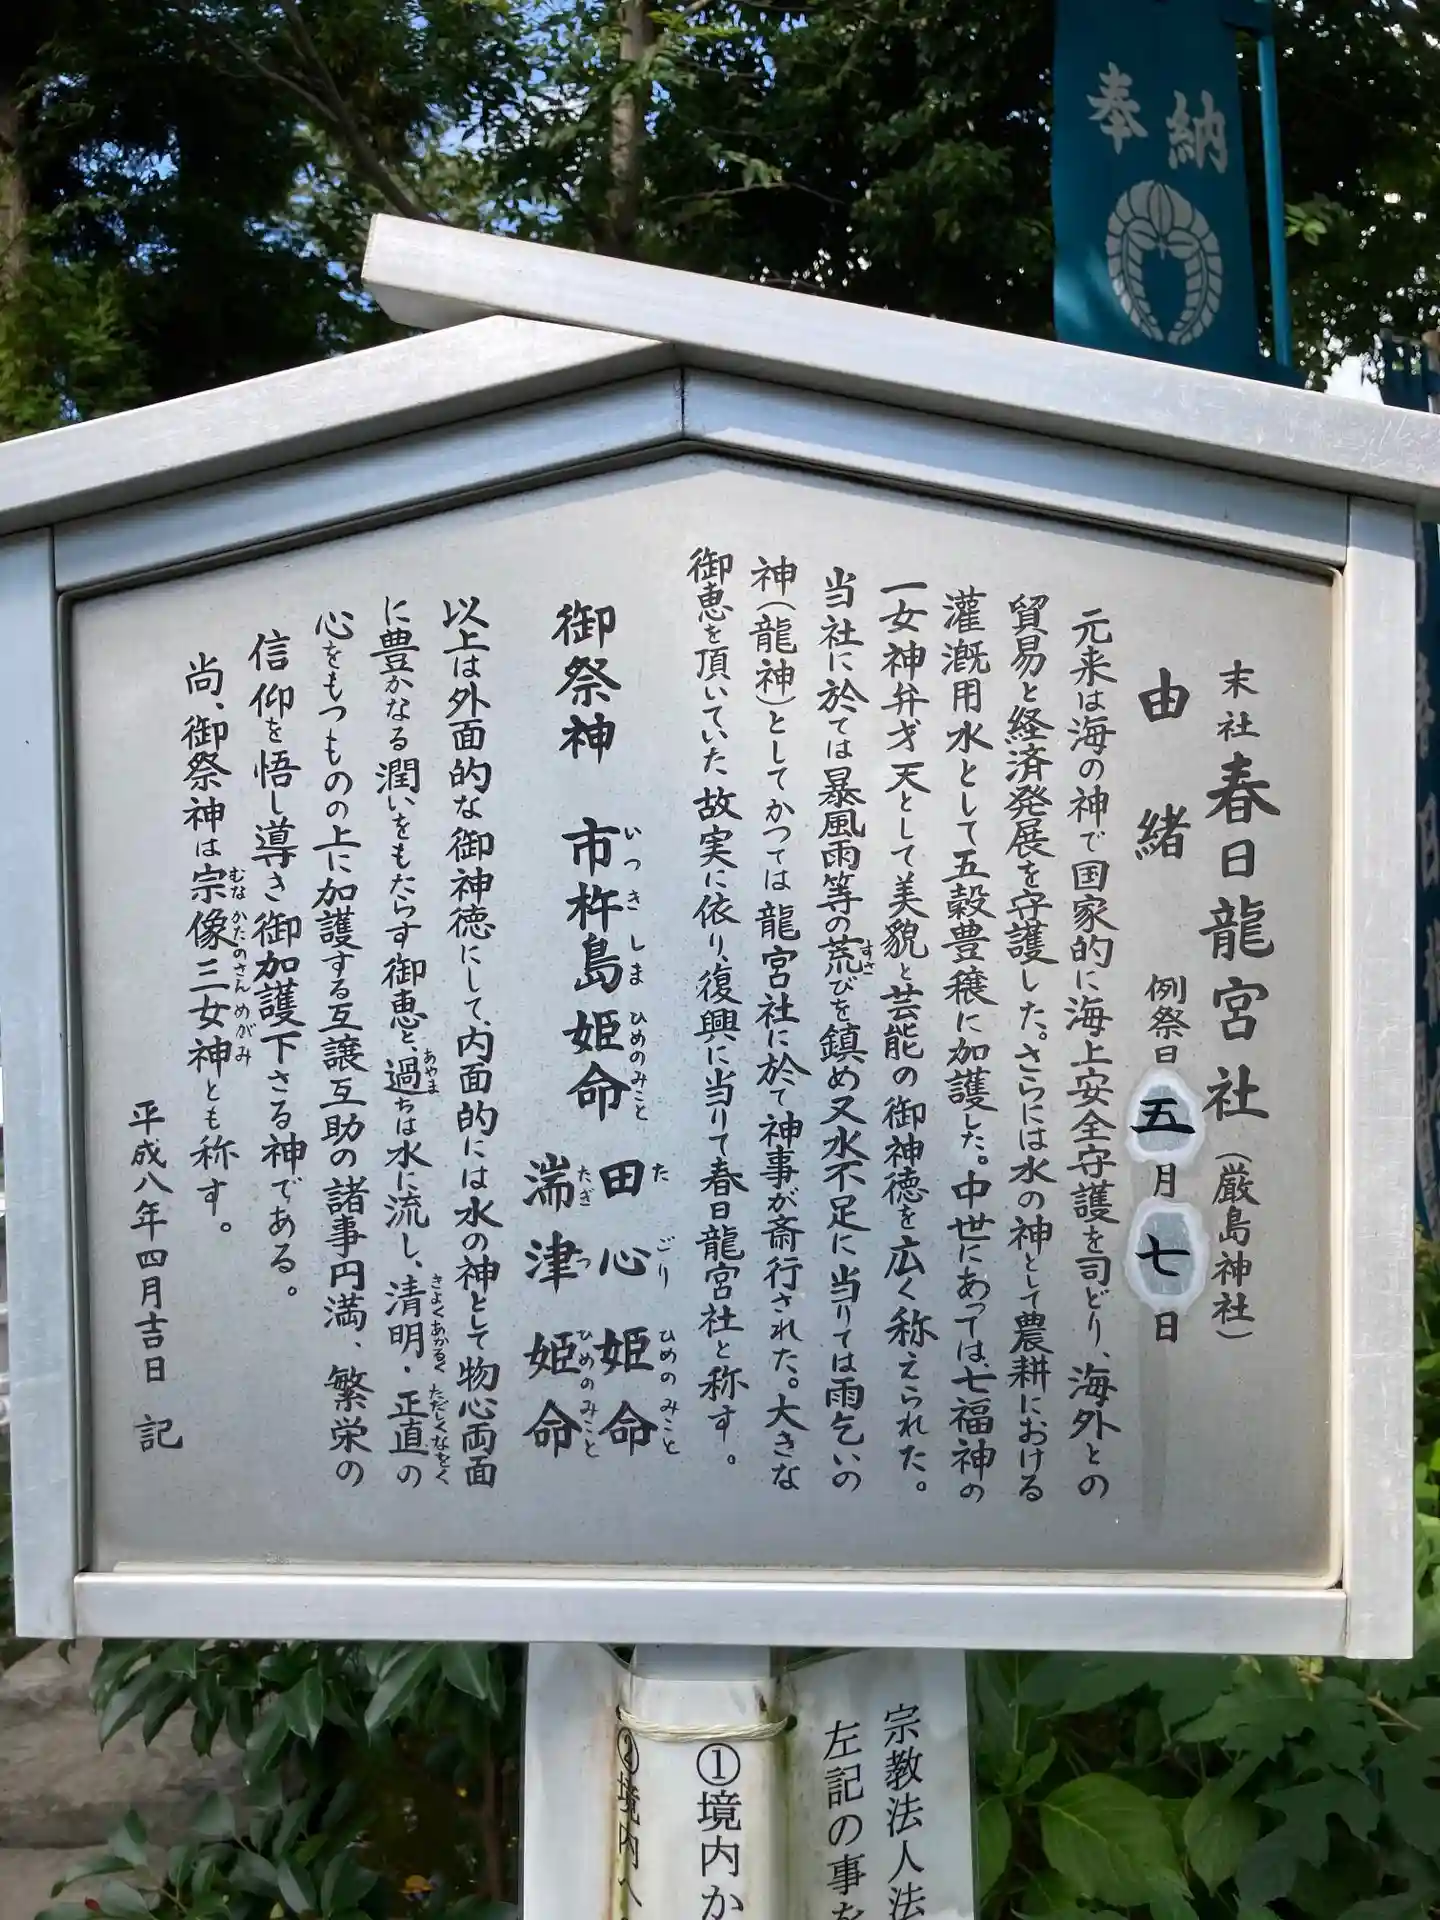 奉納
末社 春日龍宮社(厳島神社)
由緒 例祭日 五月七日
元来は海の神で国家的に海上安全守護を司どり、海外との
貿易と経済発展を守護した。さらには水の神として農耕における
灌漑用水として五穀豊穣に加護した。中世にあっては、七福神の
一女神弁才天として美貌と芸能の御神徳を広く称えられた。
当社に於ては暴風雨等の荒びを鎮め又水不足に当りては雨乞いの
すさ
神(龍神)としてかつては龍宮社に於て神事が斎行された。大きな
御恵を頂いていた故実に依り、復興に当りて春日龍宮社と称す。
御祭神 市杵島姫命 田心姫命
いつきしま ひめのみこと たごり ひめのみこと
湍津姫命
たぎつ ひめのみこと
以上は外面的な御神徳にして、内面的には水の神として物心両面
に豊かなる潤いをもたらす御恵と、過ちは水に流し、清明・正直の
あやま きよくあかるく ただしくなをく
心をもつものの上に加護する互譲互助の諸事円満、繁栄の
信仰を悟し導き御加護下さる神である。
尚、御祭神は宗像三女神とも称す。
むなかたのさんめがみ
平成八年四月吉日 記
宗教法人法
左記の事を
①境内か
②境内へ